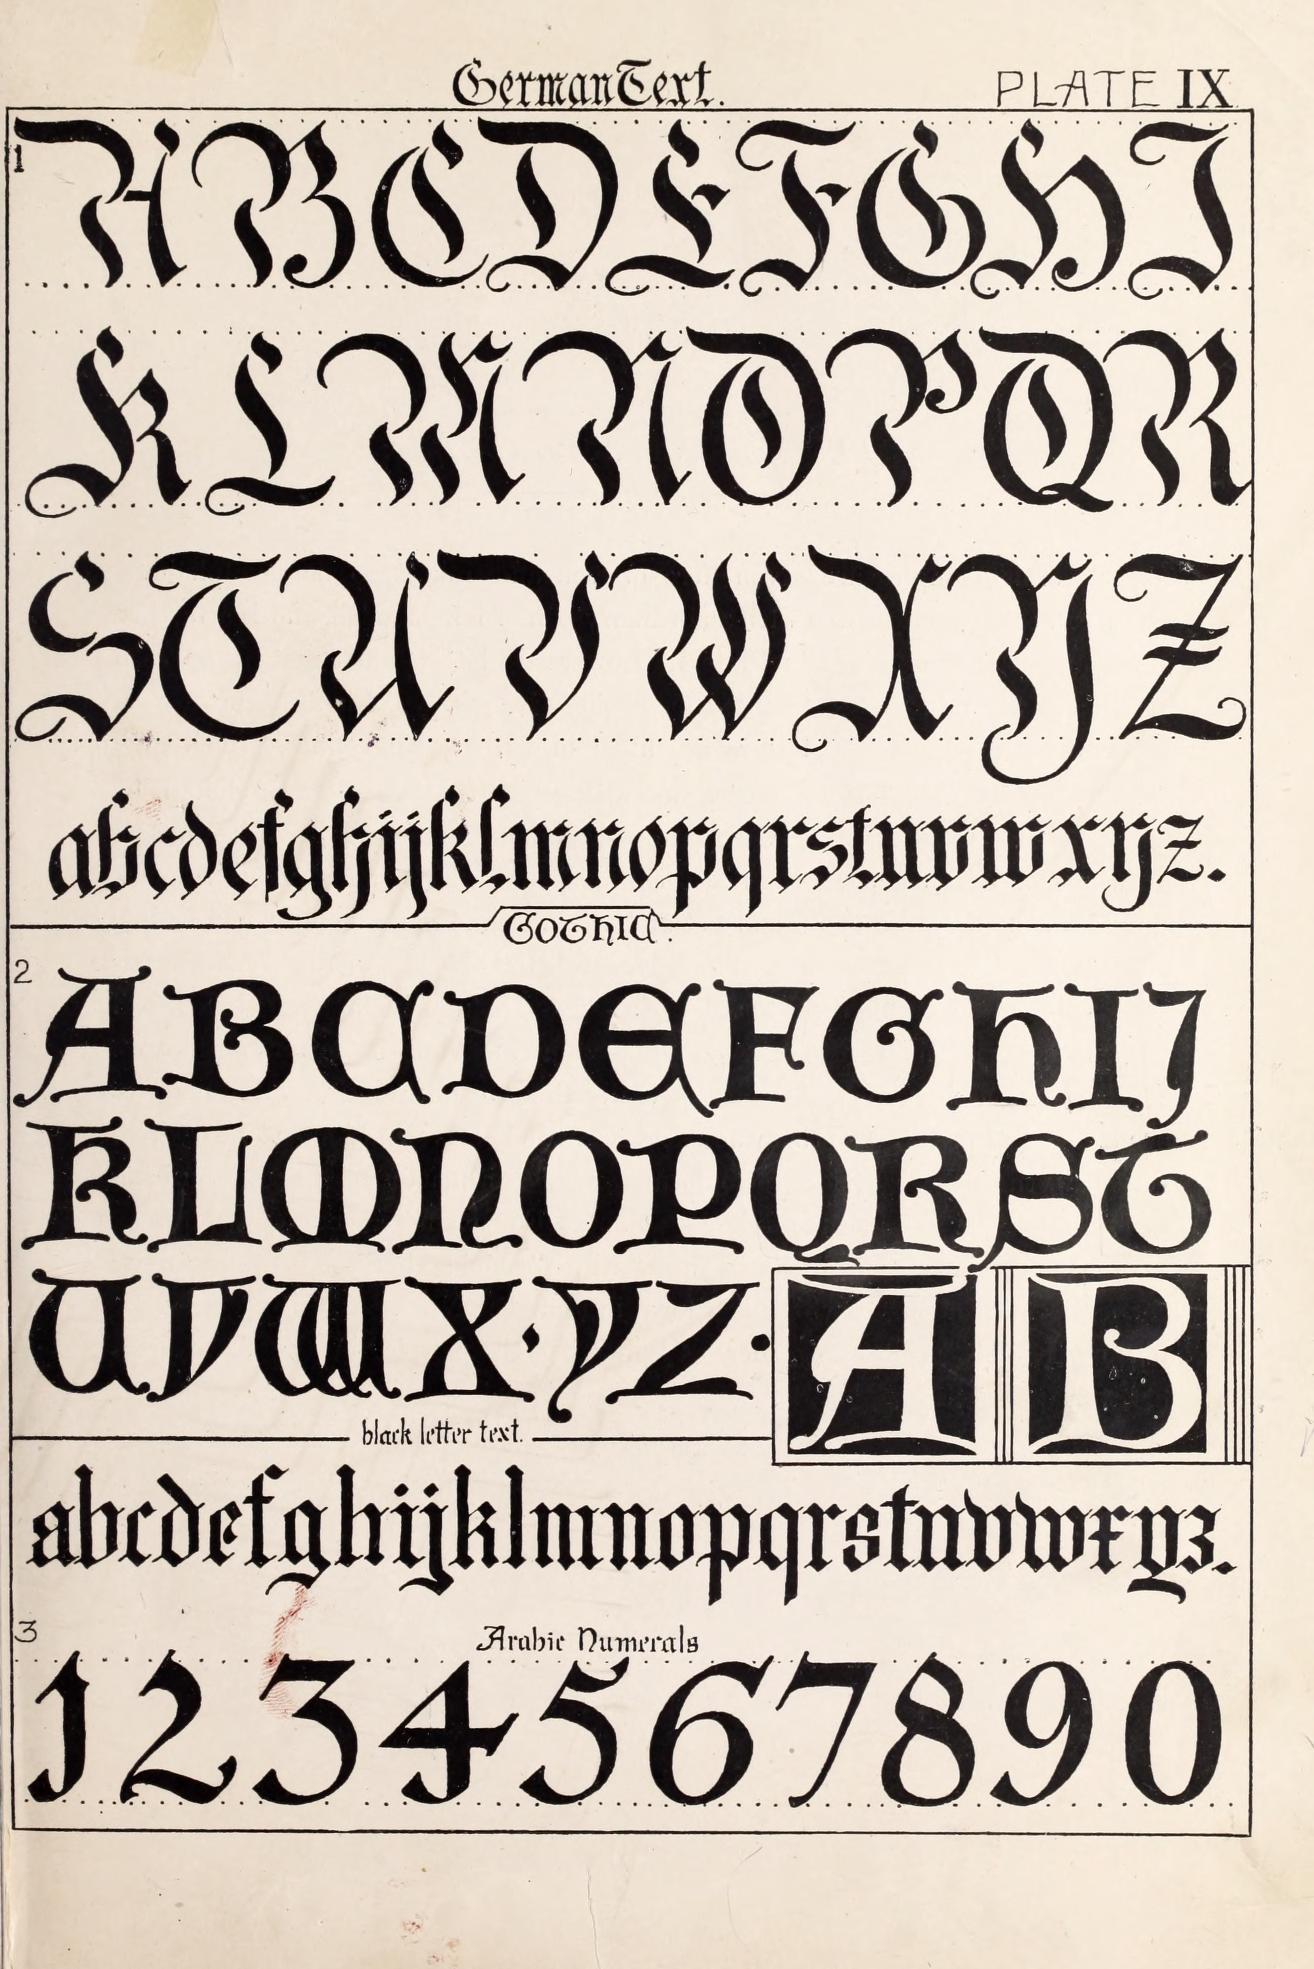 German Text.
PLATE IX
1
ABCDEFGHI
KLMNOPQR
STUVWXYZ
abcdefghijklmnopqrstuvwxyz.
GOTHIC.
2
ABCDEFGhIJ
KLMNOPQRST
UVWX·YZ·
A B
black letter text.
abcdefghijklmnopqrstuvwxyz.
3
Arabic Numerals
1234567890